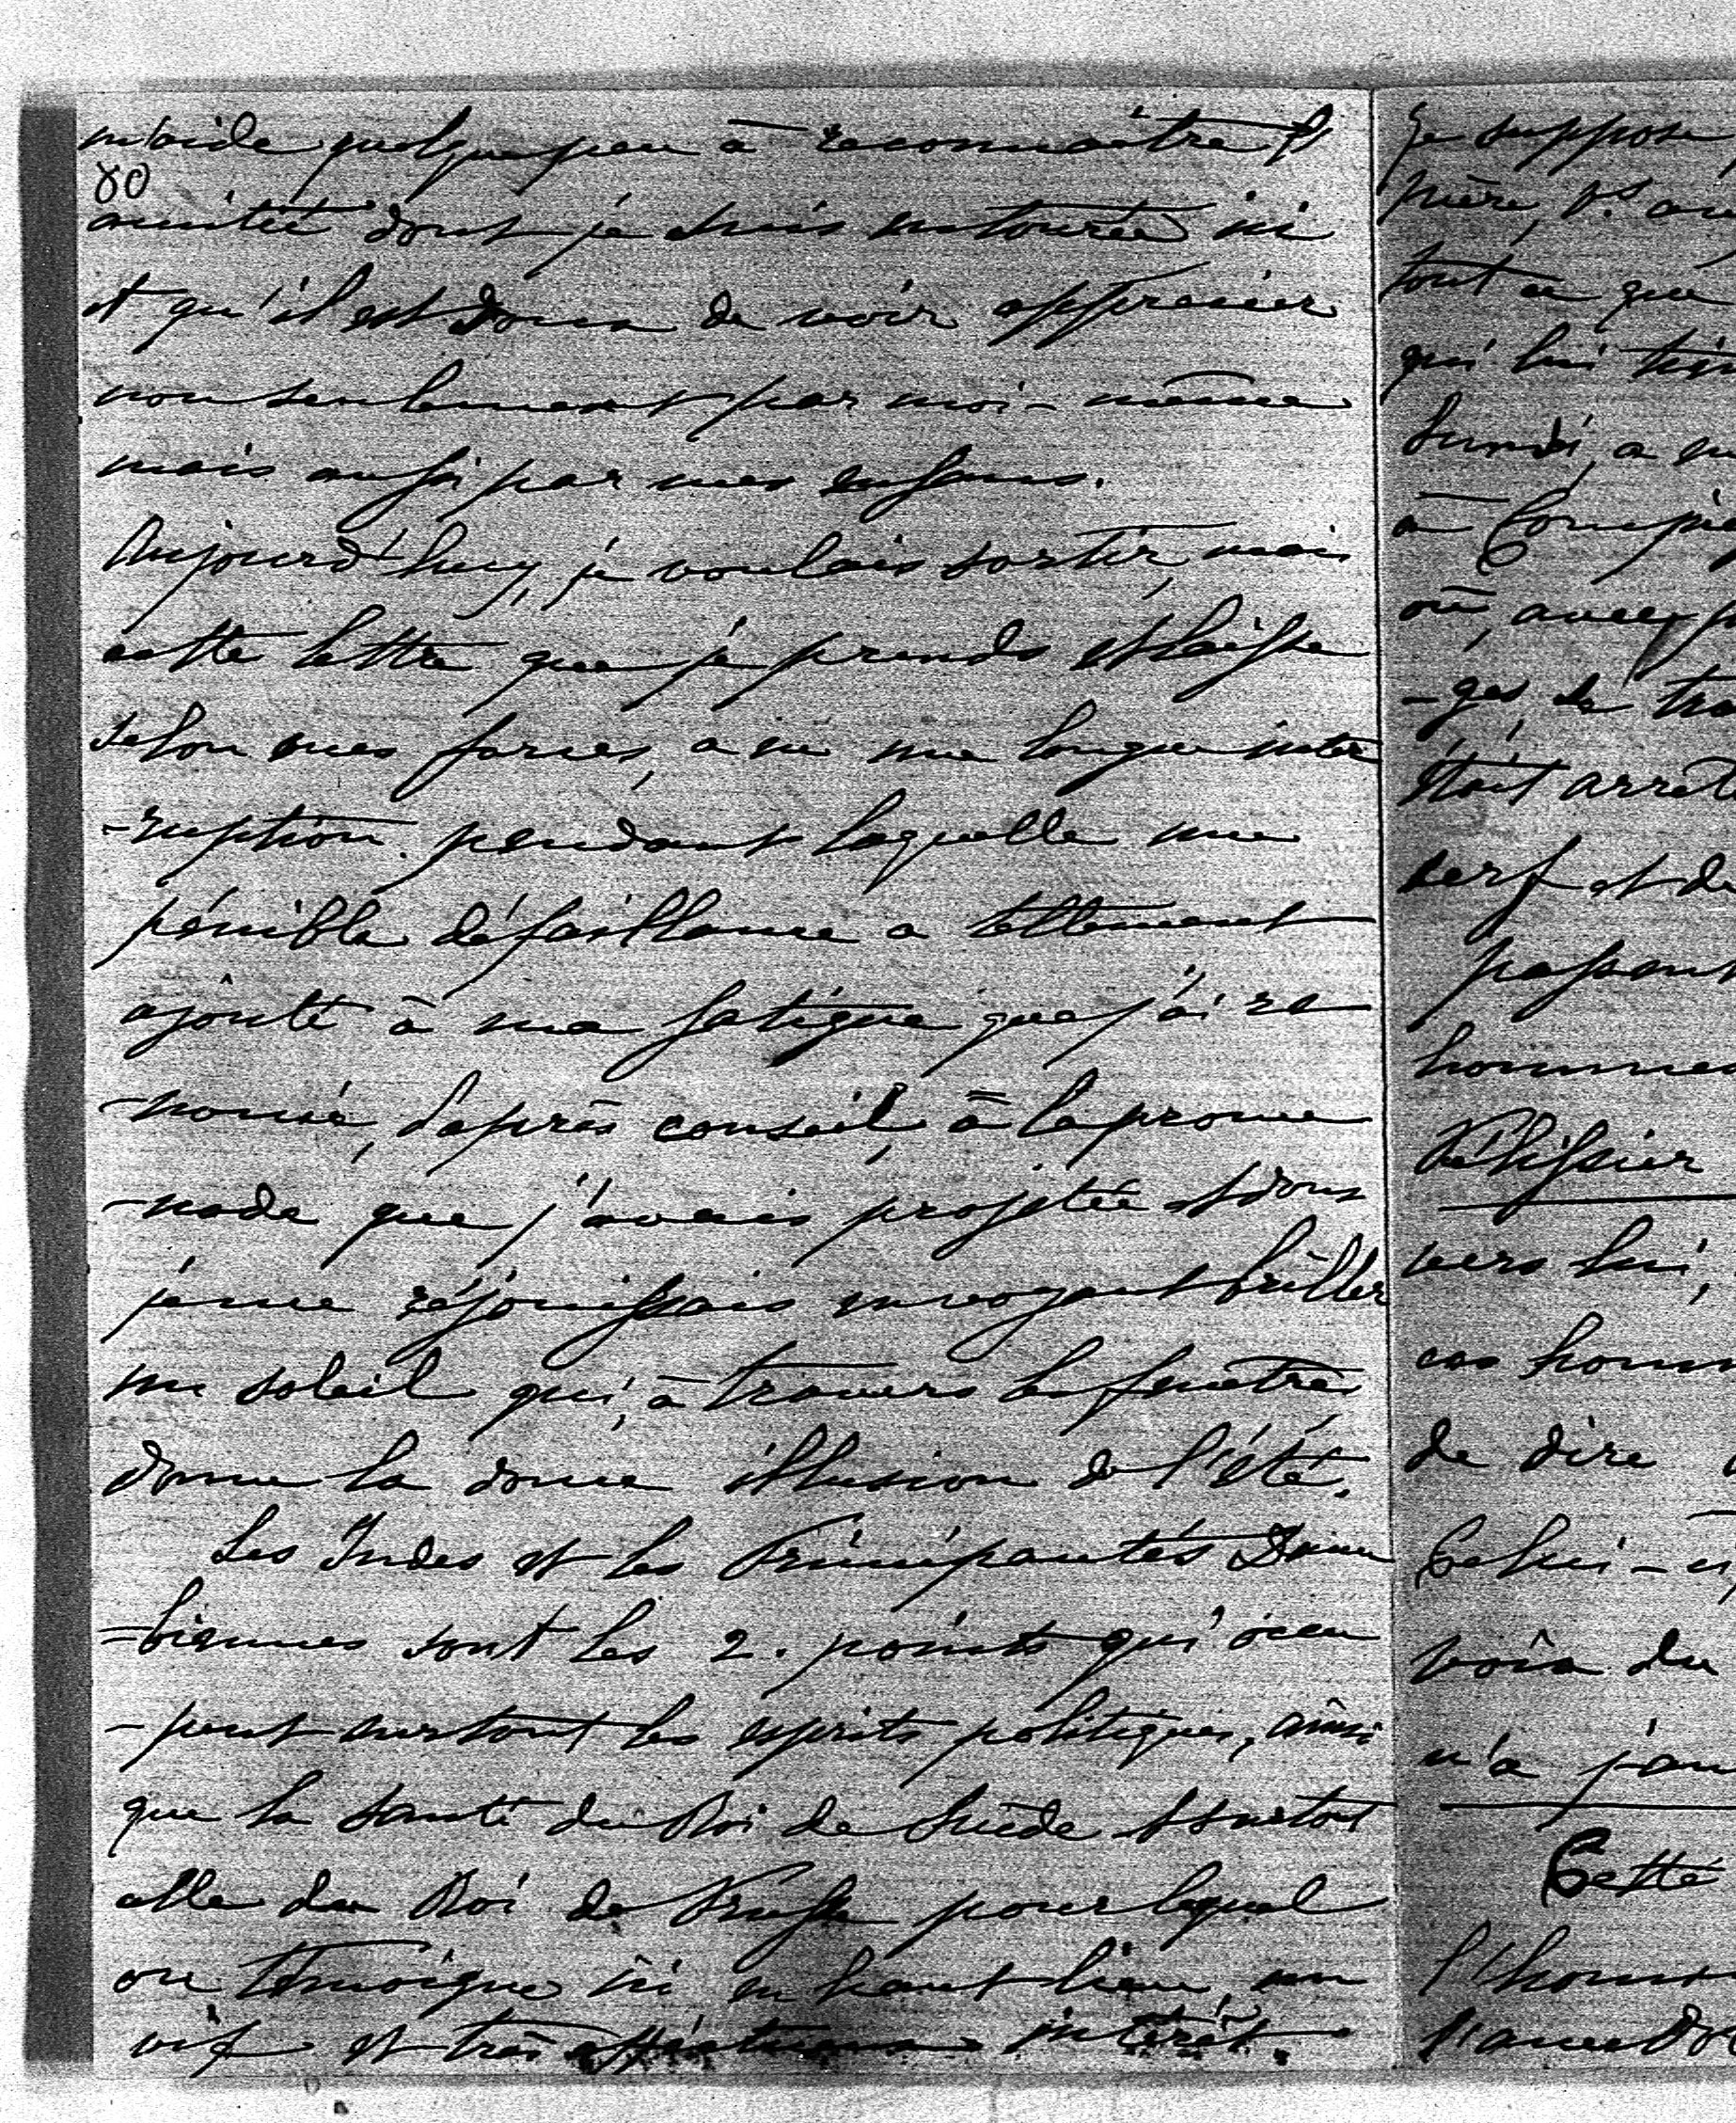 m'aide quelque peu à reconnaître l'
80
amitié dont je suis entourée ici
et qu'il est doux de voir apprécier
non seulement par moi-même
mais aussi par mes enfans.
Aujourd'huy, je voulais sortir, mais
cette lettre que je prends et laisse
selon mes forces, a eu une longue inter
-ruption pendant laquelle une
pénible défaillance a tellement
ajouté à ma fatigue que j'ai re
-noncé, d'après conseil, à la prome
-nade que j'avais projetée et dont
je me réjouissais en voyant briller
un soleil qui, à travers les fenêtres
donne la douce illusion de l'été.
Les Indes et les Principautés Danu
-biennes sont les 2. points qui occu
-pent surtout les esprits politiques, ainsi
que la santé du Roi de Suède et surtout
celle du Roi de Prusse pour lequel
on témoigne ici en haut lieu un
vif et très affectueux intérêt.
Je suppose
prière, vs. 
tout ce que
qui lui
Lundi, a
à Compiè
où, avec
-ges de
était arrêté
cerf et de
passant
hommes
Pélissier
vers lui,
ces homm
de dire
Celui-ci
voix du
n'a jam
Cette
l'homm
l'anecdo